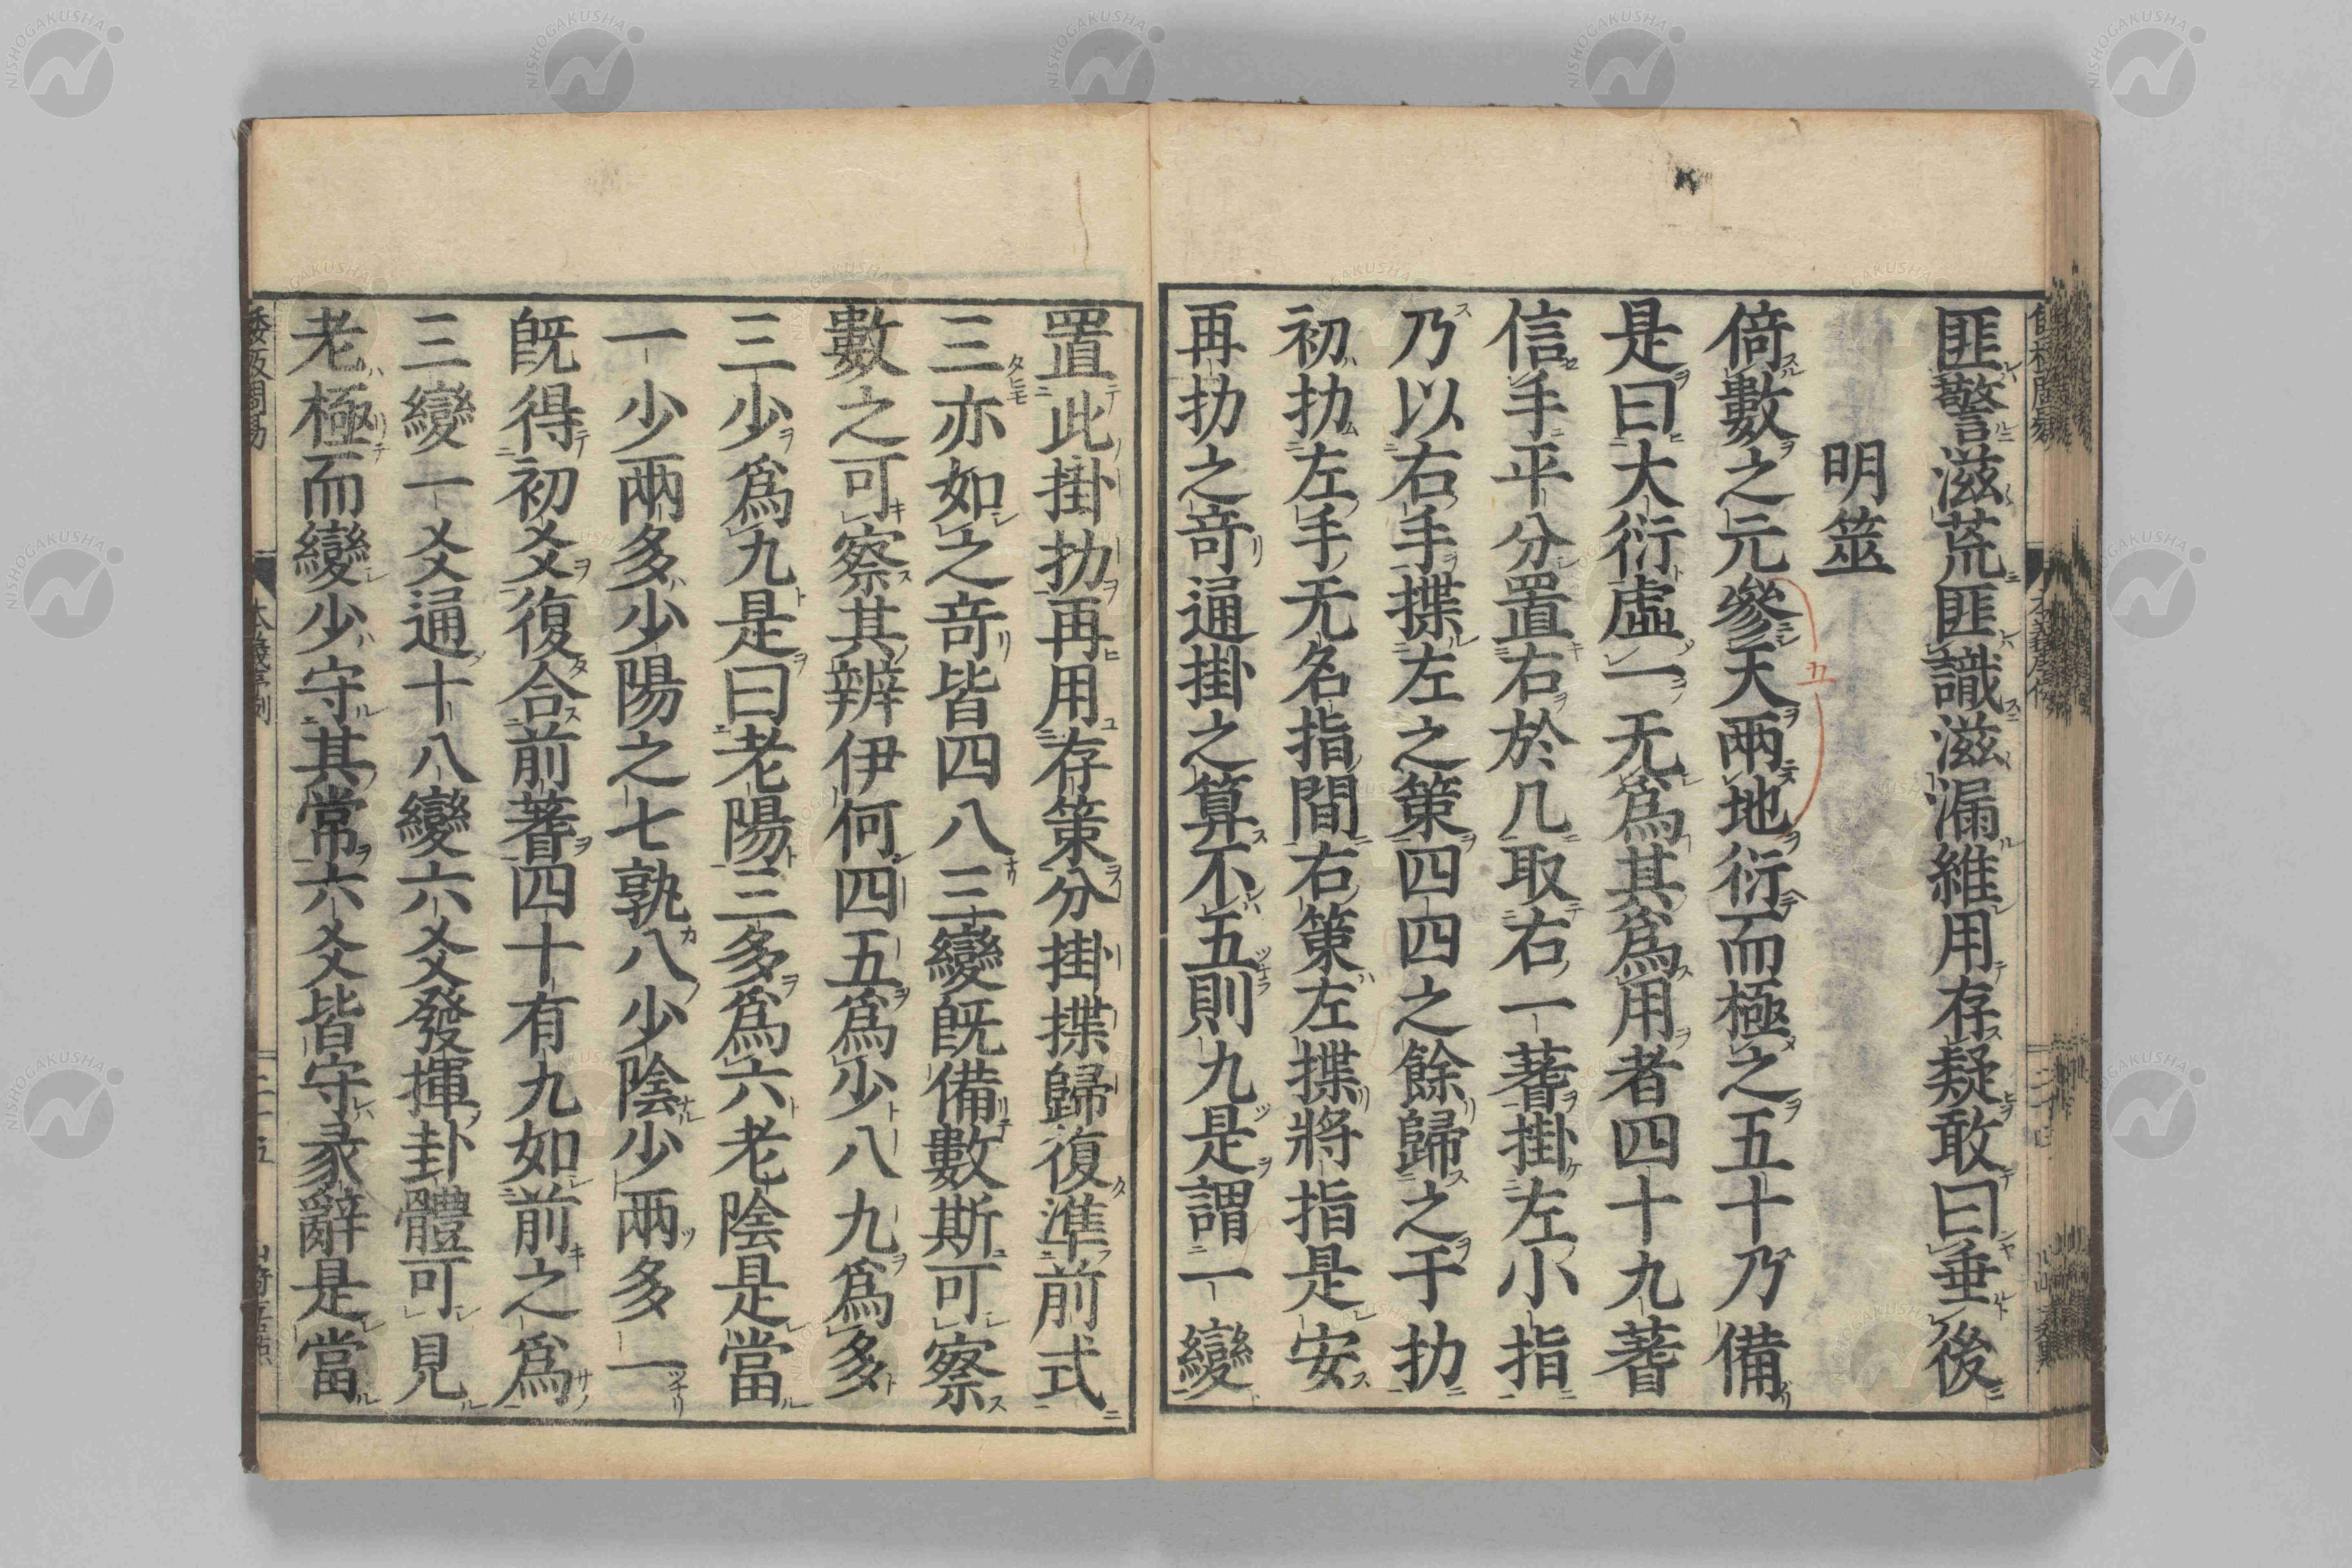 匪警滋荒匪識滋漏維用存疑敢曰垂後
明筮
倚數之元參天兩地衍而極之五十乃備
五
是曰大衍虛一无爲其爲用者四十九蓍
信手平分置右於几取右一蓍掛左小指
乃以右手揲左之策四四之餘歸之于扐
初扐左手无名指間右策左揲將指是安
再扐之奇通掛之算不五則九是謂一變
置此掛扐再用存策分掛揲歸復準前式
三亦如之奇皆四八三變既備數斯可察
數之可察其辨伊何四五爲少八九爲多
三少爲九是曰老陽三多爲六老陰是當
一少兩多少陽之七孰八少陰少兩多一
既得初爻復合前蓍四十有九如前之爲
三變一爻通十八變六爻發揮卦體可見
老極而變少守其常六爻皆守彖辭是當
NISHOGAKUSHA